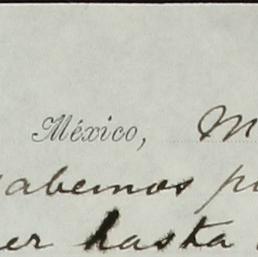 México, M
abemos p
er hasta